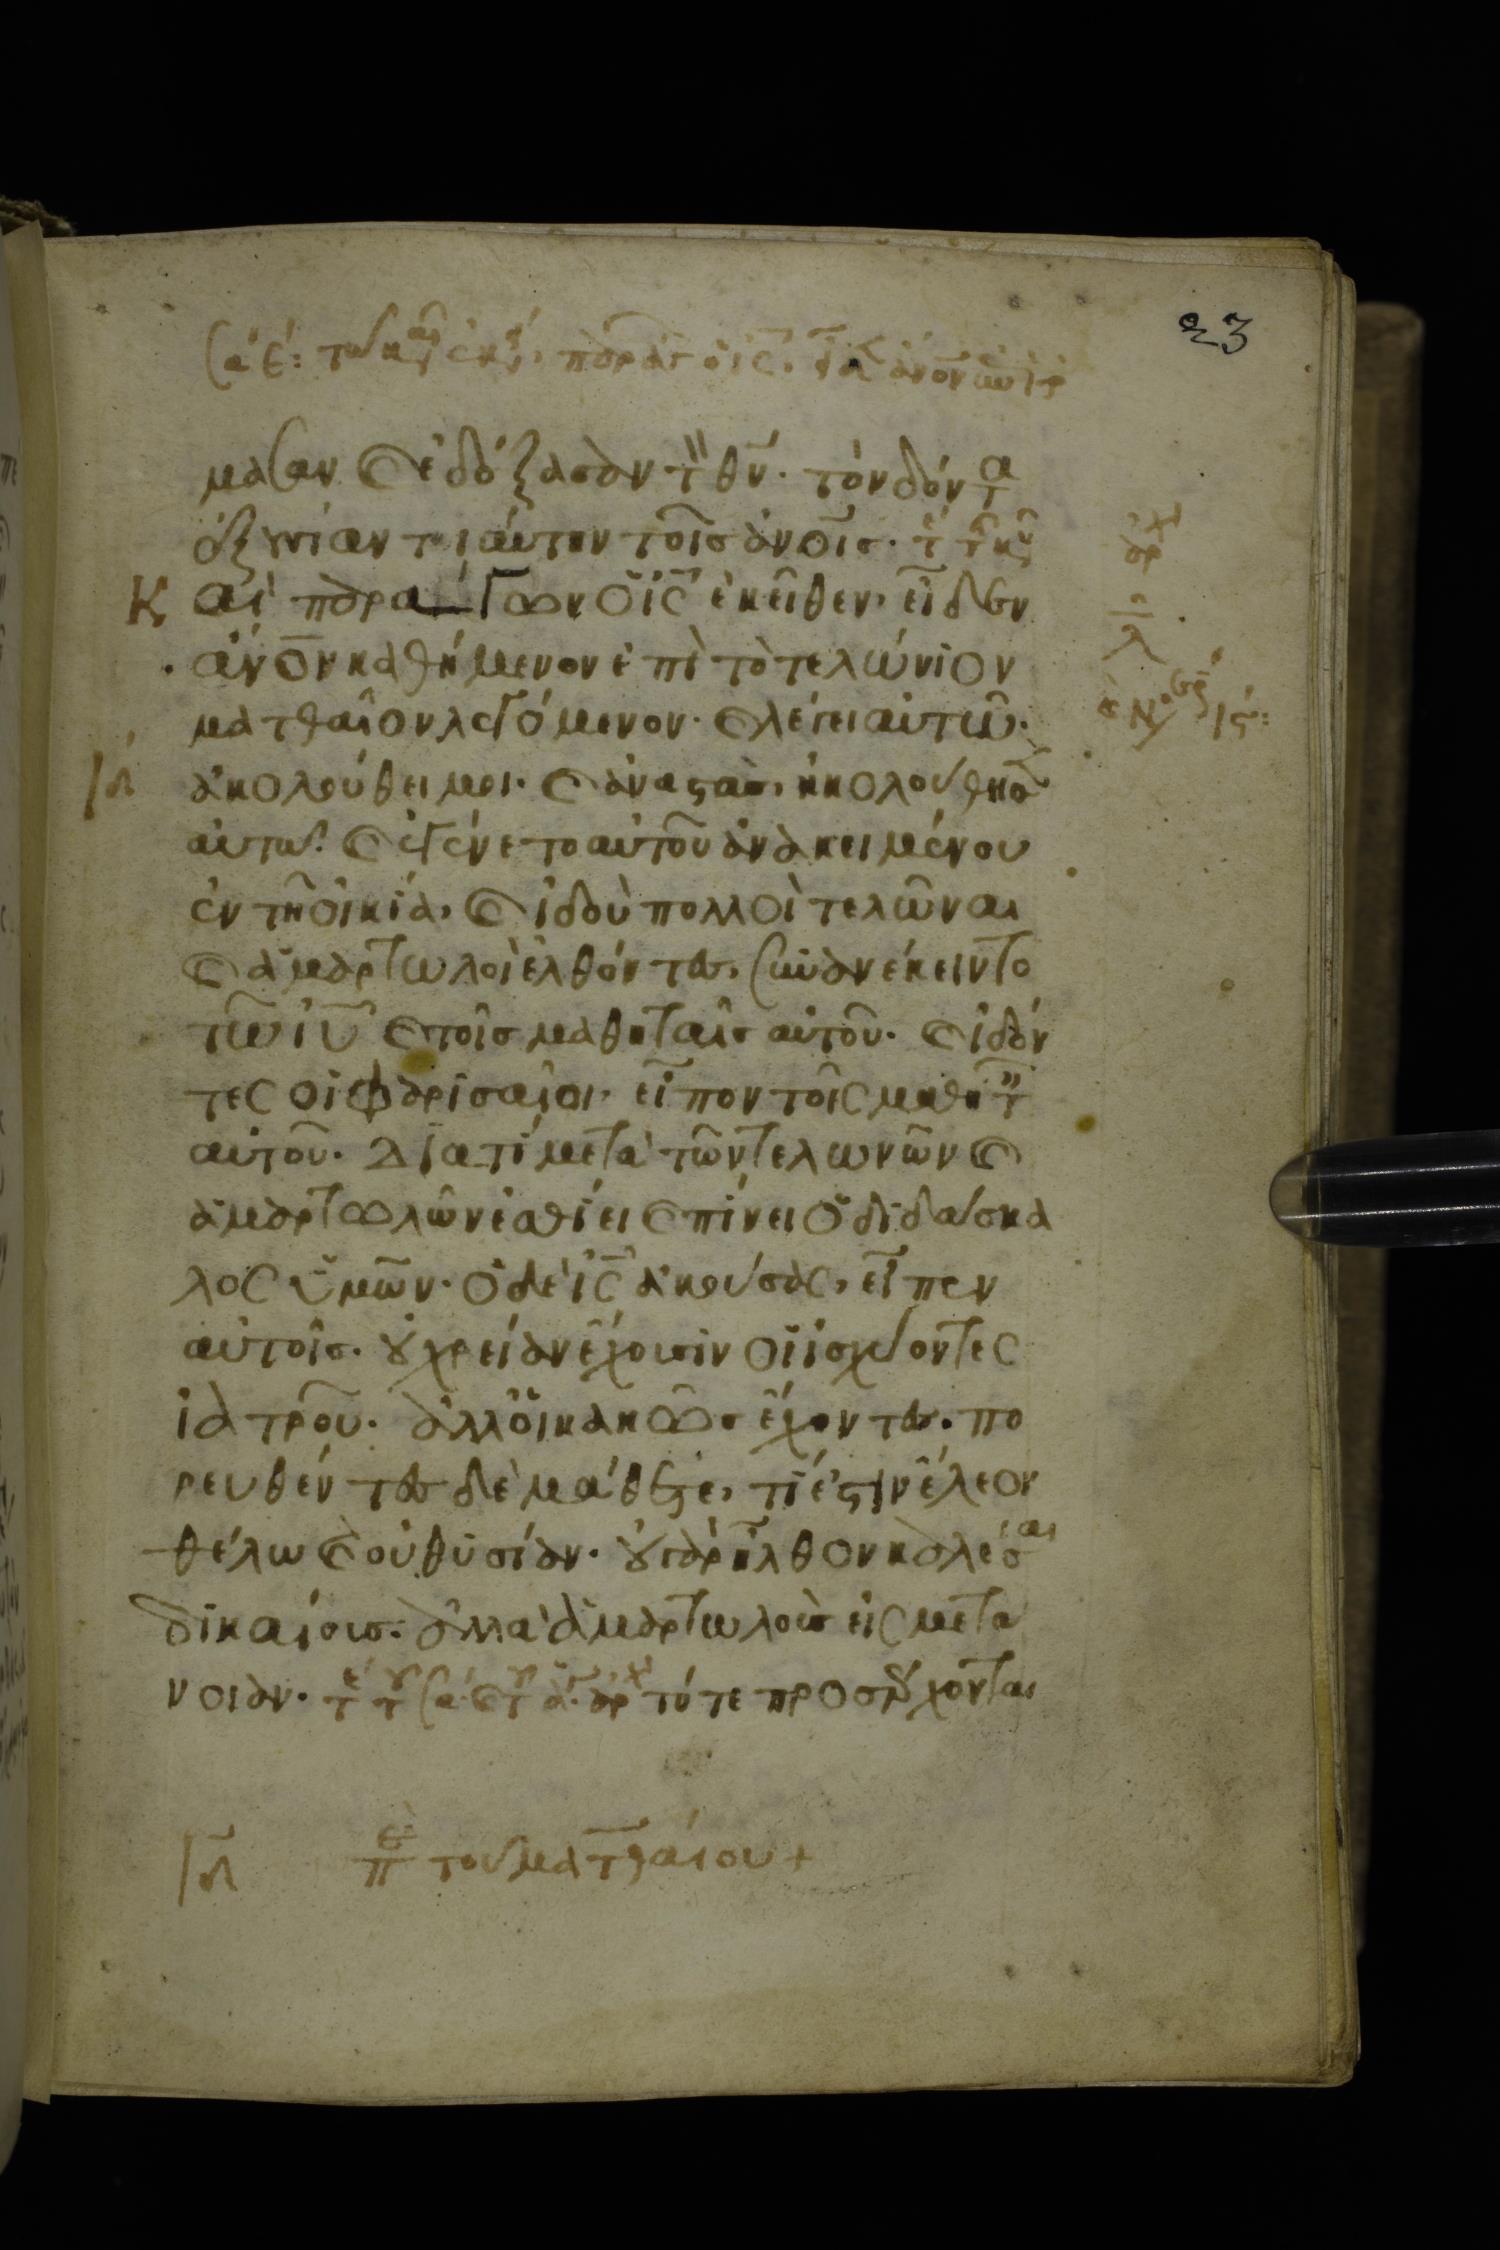 23
μασαν καὶ ἐδόξασαν τ θν̅. τὸν δόντα
ἐξουσίαν τοιαύτην τοῖς ἀνοις.
Καὶ παράγων ὁ ις̅ ἐκεῖθεν, εἶδεν
ἄνον̅ καθήμενον ἐπὶ τὸ τελώνιον
ματθαῖον λεγόμενον. καὶ λέγει αὐτῶ.
ἀκολούθει μοι. καὶ ἀναστὰς, ἠκολούθησ
αὐτῶ. καὶ ἐγένετο αὐτοῦ ἀνακειμένου
ἐν τῆ οἰκία, καὶ ἰδοὺ πολλοὶ τελῶναι
καὶ ἁμαρτωλοὶ ἐλθόντες, συνανέκειντο
τῶ ιυ̅ καὶ τοῖς μαθηταῖς αὐτοῦ. καὶ ἰδόν
τες οἱ φαρισαῖοι, εἶπον τοῖς μαθητ
αὐτοῦ. Διατί μετὰ τῶν τελωνῶν καὶ
ἁμαρτωλῶν ἐσθίει καὶ πίνει ὁ διδάσκα
λος ὑμῶν. ὁ δὲ ις̅ ἀκούσας, εἶπεν
αὐτοῖς. οὐ χρείαν ἔχουσιν οἱ ἰσχύοντες
ἰατροῦ. ἀλλ οἱ κακῶς ἔχοντες. πο
ρευθέντες δὲ μάθετε, τί ἐστιν ἔλεον
θέλω καὶ οὐ θυσίαν. οὐ γὰρ ἦλθον καλέσαι
δικαίους. ἀλλὰ ἁμαρτωλοὺς εἰς μετά
νοιαν. τότε προσέρχονται
τοῦ ματθαίου +